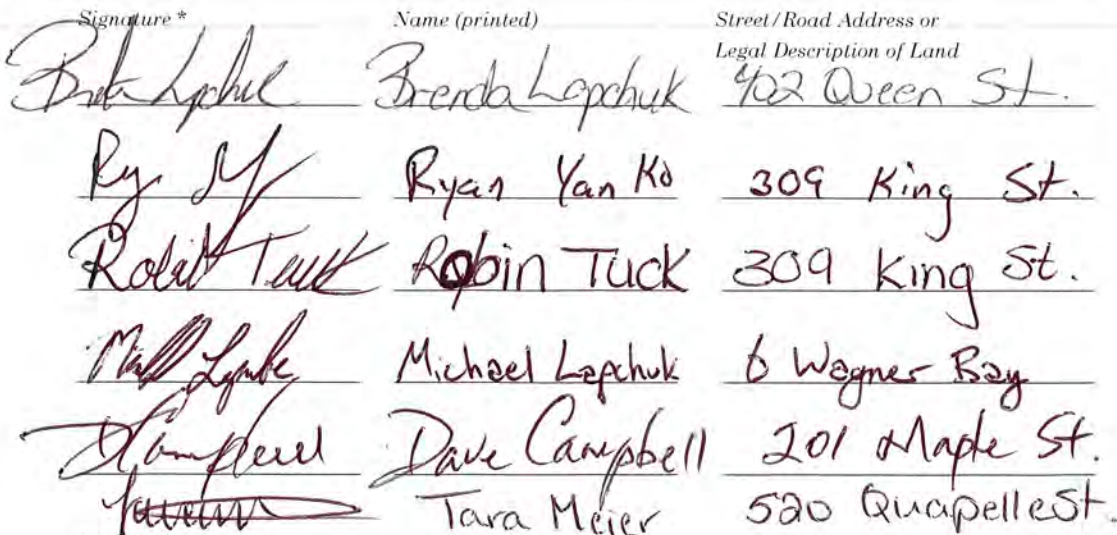 Signature * Name (printed) Street/Road Address or
Legal Description of Land
Brenda Lapchuk 402 Queen St.
Ryan Yan Ko 309 King St.
Robin Tuck Robin Tuck 309 King St.
Michael Lapchuk 6 Wagner Bay
DCampbell Dave Campbell 201 Maple St.
Tara Meier 520 Quapelle St.